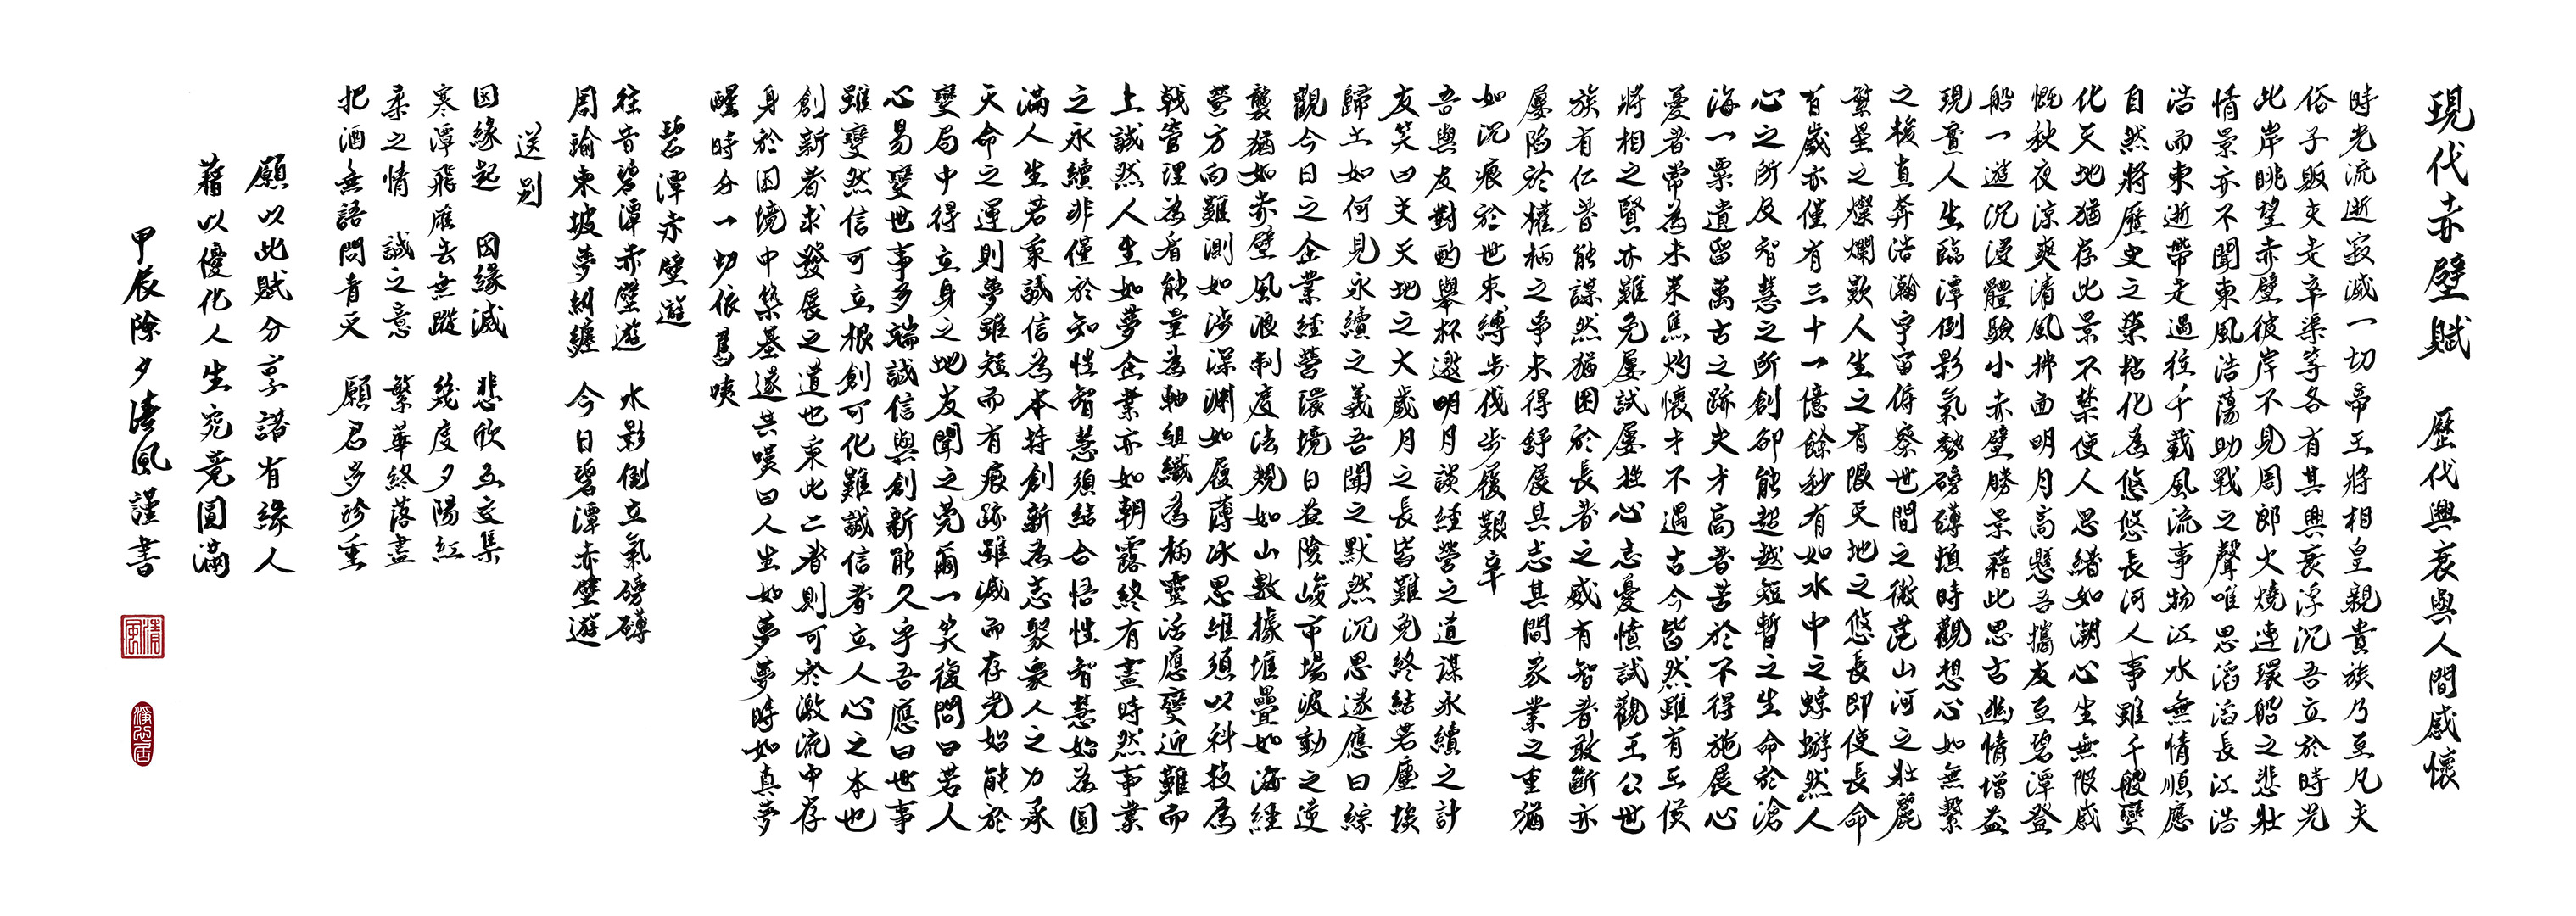 現代赤壁賦　歷代興衰與人間感懷
時光流逝寂滅一切帝王將相皇親貴族乃至凡夫
俗子販夫走卒渠等各有其興衰浮沉吾立於時光
此岸眺望赤壁彼岸不見周郎火燒連環船之悲壯
情景亦不聞東風浩蕩助戰之聲唯思滔滔長江浩
浩而東逝帶走過往千載風流事物江水無情順應
自然將歷史之榮枯化為悠悠長河人事雖千般變
化天地猶存此景不禁使人思緒如潮心生無限感
慨秋夜涼爽清風拂面明月高懸吾攜友至碧潭登
船一遊沉浸體驗小赤壁勝景藉此思古幽情增益
現實人生臨潭倒影氣勢磅礡頓時觀想心如無繫
之梭直奔浩瀚宇宙俯察世間之微茫山河之壯麗
繁星之燦爛歎人生之有限天地之悠長即使長命
百歲亦僅有三十一億餘秒有如水中之蜉蝣然人
心之所及智慧之所創卻能超越短暫之生命於滄
海一粟遺留萬古之跡夫才高者苦於不得施展心
憂者常為未來焦灼懷才不遇古今皆然雖有王侯
將相之賢亦難免屢試屢挫心志憂憤試觀王公世
族有仁者能謀然猶困於長者之威有智者敢斷亦
屢陷於權柄之爭未得舒展其志其間家業之重猶
如沉痕於世束縛步伐步履艱辛
吾與友對酌舉杯邀明月談經營之道謀永續之計
友笑曰夫天地之大歲月之長皆難免終結若塵埃
歸土如何見永續之義吾聞之默然沉思遂應曰綜
觀今日之企業經營環境日益險峻市場波動之逆
襲猶如赤壁風浪制度法規如山數據堆疊如海經
營方向難測如涉深淵如履薄冰思維須以科技為
戟管理為盾能量為軸組織為柄靈活應變迎難而
上誠然人生如夢企業亦如朝露終有盡時然事業
之永續非僅於知性智慧須結合悟性智慧始為圓
滿人生若秉誠信為本持創新為志聚眾人之力承
天命之運則夢雖短而有痕跡雖滅而存光始能於
變局中得立身之地友聞之莞爾一笑復問曰若人
心易變世事多端誠信與創新能久乎吾應曰世事
雖變然信可立根創可化難誠信者立人心之本也
創新者求發展之道也秉此二者則可於激流中存
身於困境中築基遂共嘆曰人生如夢夢時如真夢
醒時分一切依舊咦
碧潭赤壁遊
往昔碧潭赤壁遊　水影倒立氣磅礡
周瑜東坡夢糾纏　今日碧潭赤壁遊
送別
因緣起　因緣滅　悲欣互交集
寒潭飛雁去無蹤　幾度夕陽紅
柔之情　誠之意　繁華終落盡
把酒無語問青天　願君多珍重
願以此賦分享諸有緣人
藉以優化人生究竟圓滿
甲辰除夕清風謹書
清風